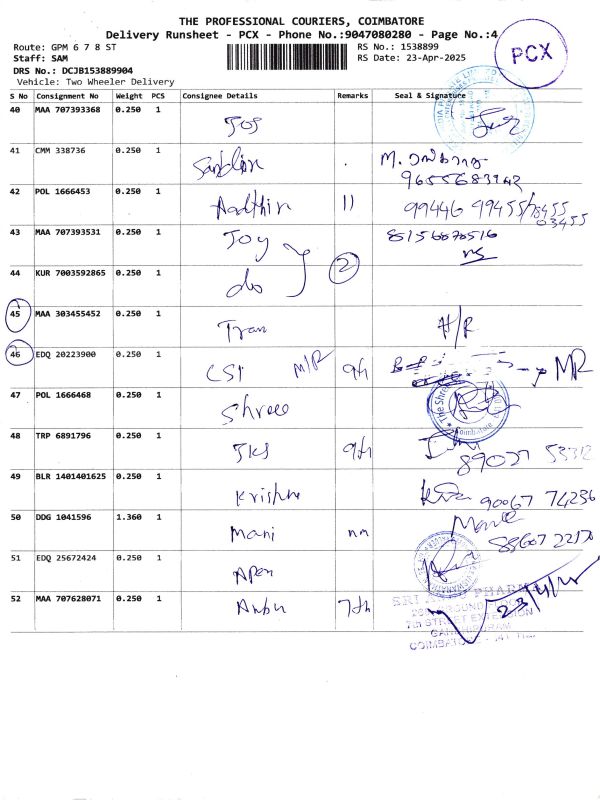 THE PROFESSIONAL COURIERS, COIMBATORE
Delivery Runsheet - PCX - Phone No.:9047080280 - Page No.:4
PCX
Route: GPM 6 7 8 ST
RS No.: 1538899
Staff: SAM
RS Date: 23-Apr-2025
DRS No.: DCJB153889904
Vehicle: Two Wheeler Delivery
S No Consignment No Weight PCS Consignee Details Remarks Seal & Signature
40 MAA 707393368 0.250 1 Jos
41 CMM 338736 0.250 1
9655683942
42 POL 1666453 0.250 1 Aadthin 11 99446 99455/78455
03455
43 MAA 707393531 0.250 1 Joy
2
44 KUR 7003592865 0.250 1 do
45 MAA 303455452 0.250 1 Tran H/R
46 EDQ 20223900 0.250 1 CSI M/R 9th MR
47 POL 1666468 0.250 1 Shree
The Shree
Coimbatore
48 TRP 6891796 0.250 1 JKS 9th
49 BLR 1401401625 0.250 1 Krishna 90067 74236
50 DDG 1041596 1.360 1 Mani nn
51 EDQ 25672424 0.250 1 Apex
52 MAA 707628071 0.250 1 Anbu 7th 23/4/25
SRI PHARMA
7th STREET EXTENSION